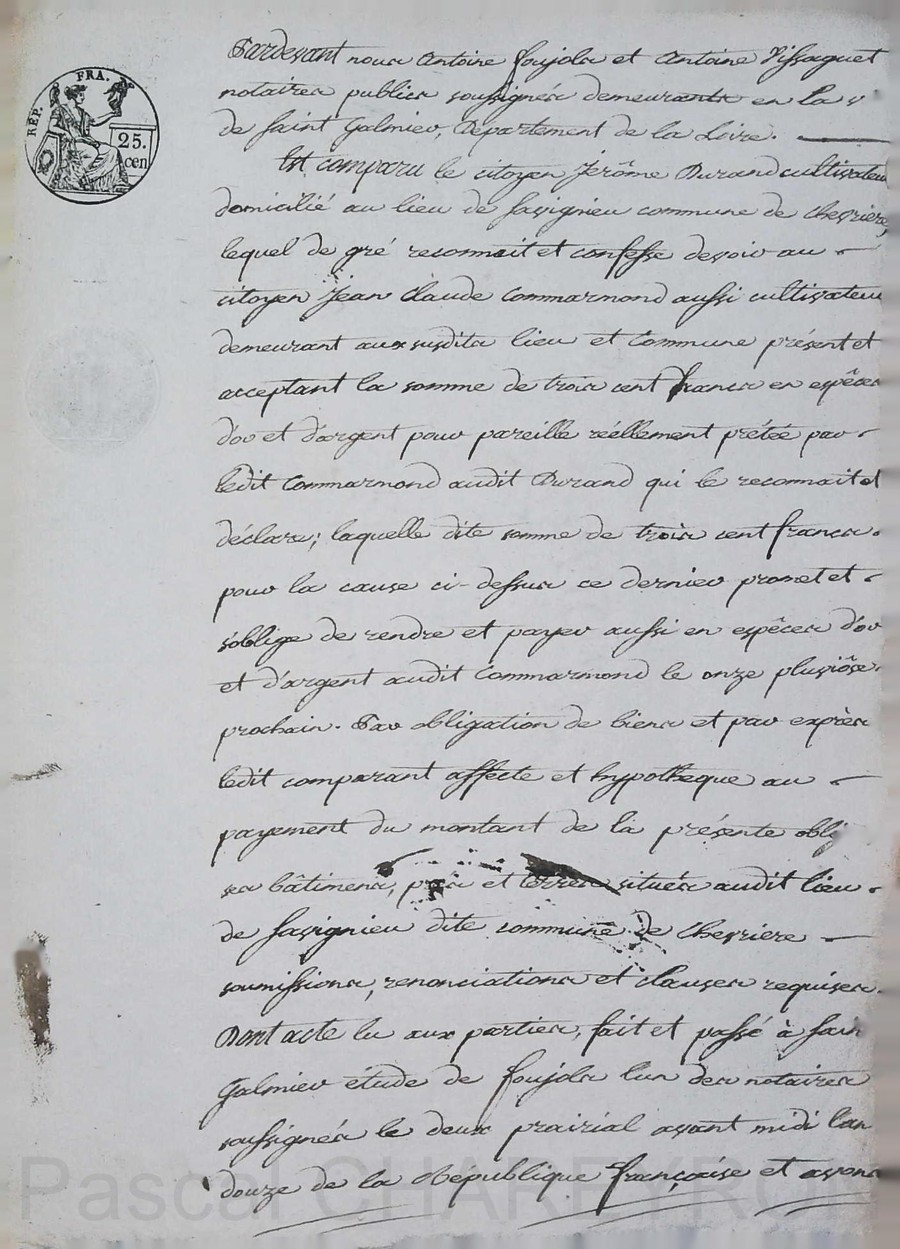 RÉP. FRA.
25.
cen
Pardevant nous Antoine foujols et Antoine Vissaguet
notaires publics soussignés demeurants en la
de Saint Galmier, Département de la Loire.
Est comparu le citoyen Jérôme Durand cultivateur
domicilié au lieu de Savignieu commune de Chevriere,
lequel de gré reconnait et confesse devoir au
citoyen Jean Claude Commarmond aussi cultivateur
demeurant aux susdits lieu et Commune présent et
acceptant la somme de trois cent francs en espêces
d'or et d'argent pour pareille réellement prêtée par
ledit Commarmond audit Durand qui le reconnait et
déclare; laquelle dite somme de trois cent francs.
pour la cause ci-dessus ce dernier promet et
s'oblige de rendre et payer aussi en espêces d'or
et d'argent audit Commarmond le onze pluviôse
prochain. Par obligation de biens et par exprès
ledit comparant affecte et hypotheque au
payement du montant de la présente oblig
ses bâtimens, prés et terres situés audit lieu
de Savignieu dite commune de Chevriere
soumissions, renonciations et clauses requises.
Dont acte lu aux parties, fait et passé à Sain
Galmier étude de foujols l'un des notaires
soussignés le deux prairial avant midi l'an
douze de la République française et avons
Pascal CHAREYRON